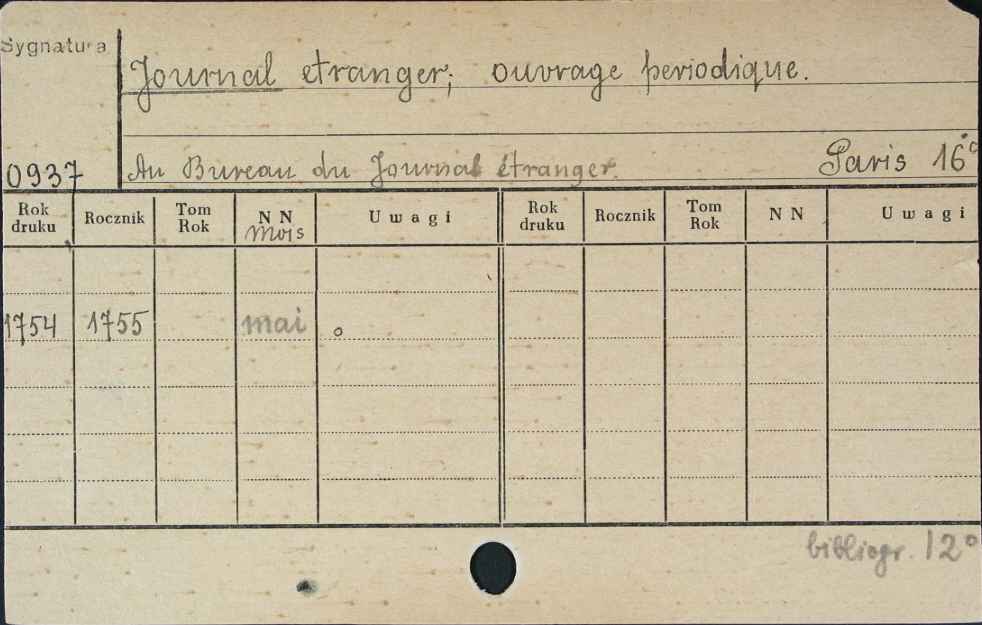 Sygnatura
Journal etranger; ouvrage periodique.
0937 Au Bureau du Journal étranger. Paris 16°
Rok druku Rocznik Tom Rok NN Mois Uwagi Rok druku Rocznik Tom Rok NN Uwagi
1754 1755 mai o
bibliogr. 12°